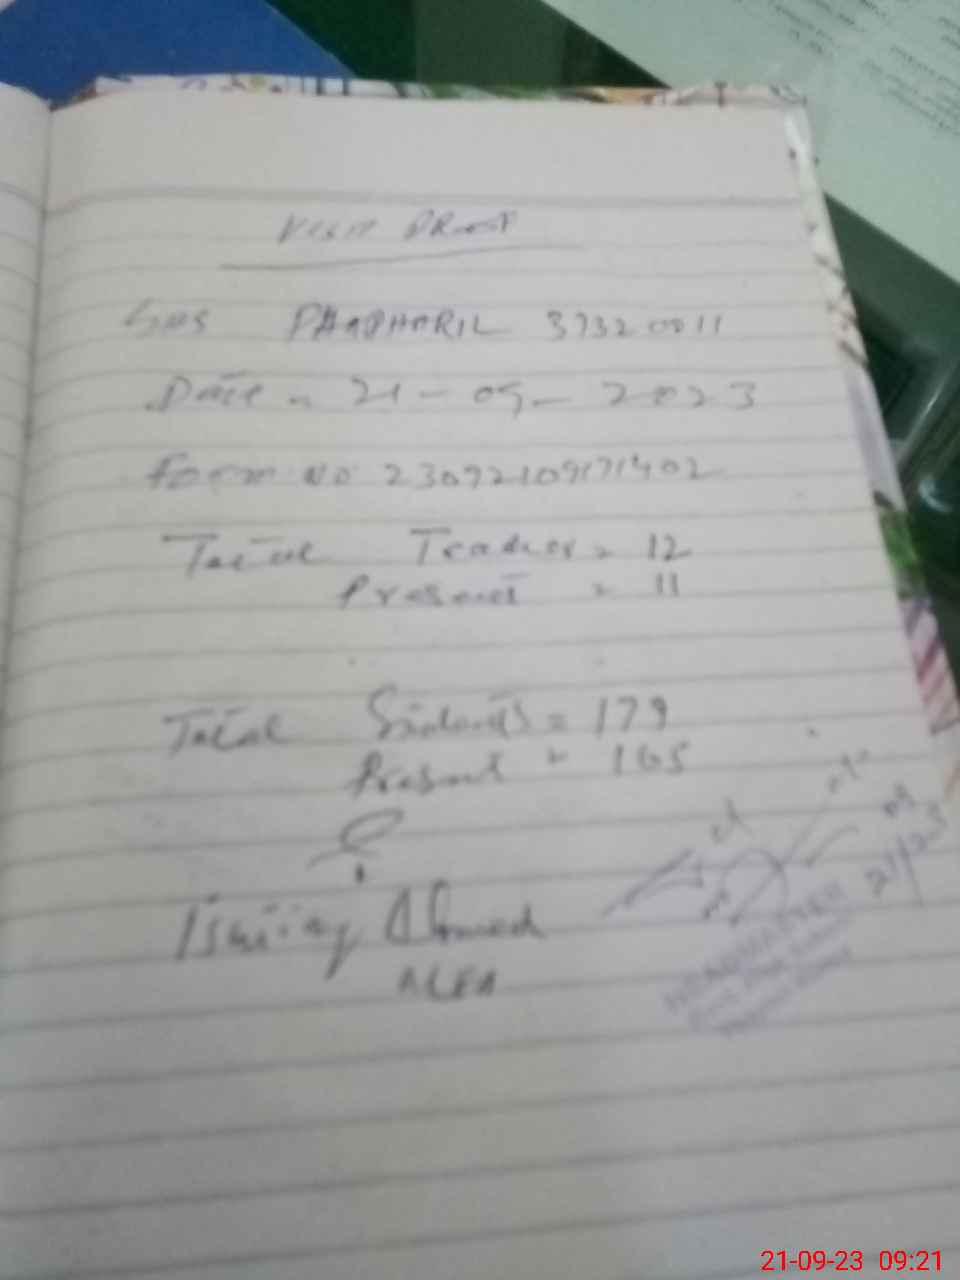 Visit Proof
GBS PHAPHORIL 37320011
Date = 21-09-2023
Form No 23092109171402
Total Teacher = 12
Present = 11
Total Students = 179
Present = 165
Ishtiaq Ahmed
AEO
HEADMASTER
21/23
21-09-23 09:21